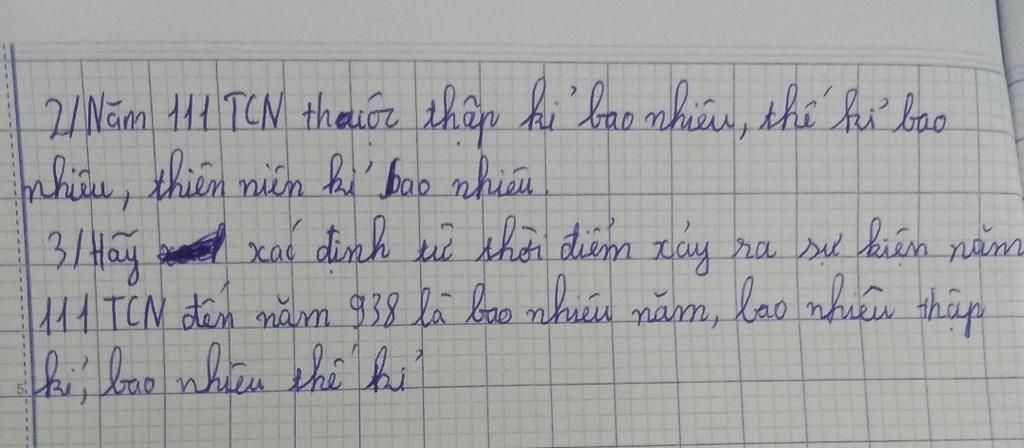 2/ Năm 111 TCN thuộc thập kỉ bao nhiêu, thế kỉ bao
nhiêu, thiên niên kỉ bao nhiêu.
3/ Hãy xác định từ thời điểm xảy ra sự kiện năm
111 TCN đến năm 938 là bao nhiêu năm, bao nhiêu thập
kỉ, bao nhiêu thế kỉ